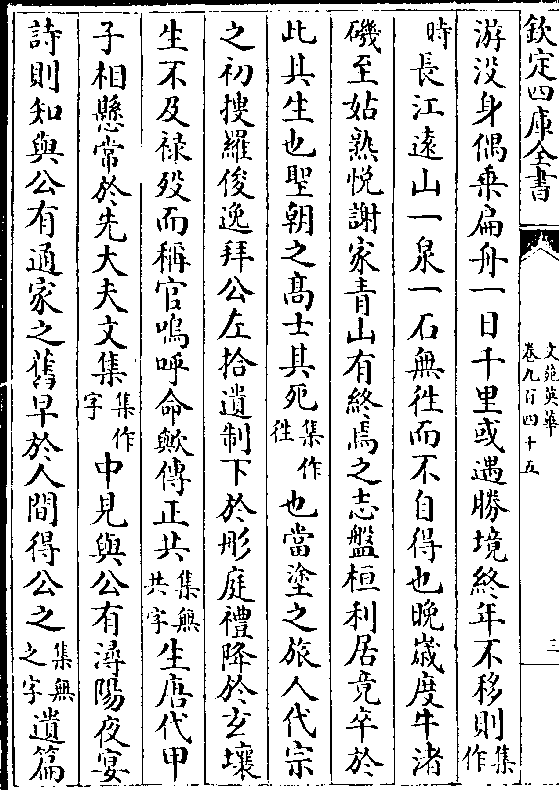 欽定四庫全書
文苑英華
卷九百四十五
三
游没身偶乗扁舟一日千里或遇勝境終年不移則集作
時長江逺山一泉一石無徃而不自得也晩嵗度牛渚
磯至姑熟悦謝家青山有終焉之志盤桓利居竟卒於
此其生也聖朝之髙士其死集作徃也當塗之旅人代宗
之初搜羅俊逸拜公左拾遺制下於彤庭禮降於玄壤
生不及禄殁而稱官嗚呼命歟傳正共集無共字生唐代甲
子相懸常於先大夫文集集作字中見與公有潯陽夜宴
詩則知與公有通家之舊早於人間得公之集無之字遺篇